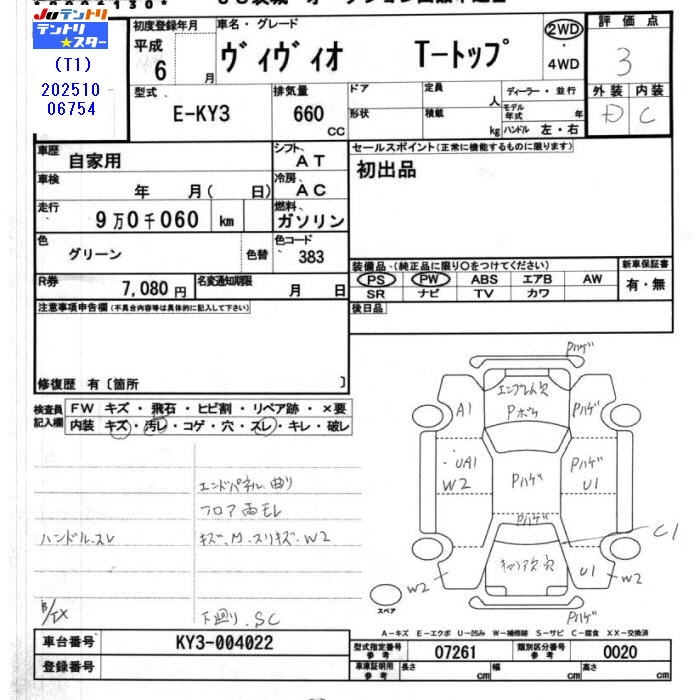 Juテントリ
テントリ★スター
(T1)
202510
06754
初度登録年月
平成
6 月
車名・グレード
ヴィヴィオ T-トップ
2WD
・
4WD
評価点
3
外装 内装
D C
型式
E-KY3
排気量
660
CC
ドア
形状
定員
人
積載
kg
ディーラー・並行
モデル年式 年
ハンドル 左・右
車歴
自家用
シフト
AT
車検
年 月( 日)
冷房
AC
走行
9万0千060 km
燃料
ガソリン
色
グリーン
色替
色コード
383
セールスポイント(正常に機能するものに限ります)
初出品
装備品、(純正品に限り○をつけてください)
PS PW ABS エアB AW
SR ナビ TV カワ
新車保証書
有・無
後日品
R券
7,080 円
名変通知期限
月 日
注意事項申告欄(不具合内容等は具体的に記入して下さい)
修復歴 有〔箇所 〕
検査員記入欄
FW キズ・飛石・ヒビ割・リペア跡・×要
内装 キズ・汚レ・コゲ・穴・スレ・キレ・破レ
エンドパネル曲り
フロア両モレ
ハンドルスレ
キズ.M.スリキズ.W2
下廻り.SC
Pハゲ
エンブレム穴
Pボケ
A1
Pハゲ
・UA1
W2
Pハゲ
Pハゲ
U1
Pハゲ
C1
キャリア穴
W2
U1
W2
Pハゲ
スペア
A-キズ E-エクボ U-凹み W-補修跡 S-サビ C-腐食 XX-交換済
車台番号 KY3-004022
登録番号
型式指定番号
参考
07261
類別区分番号
参考
0020
車庫証明用
参考
長さ cm
幅 cm
高さ cm